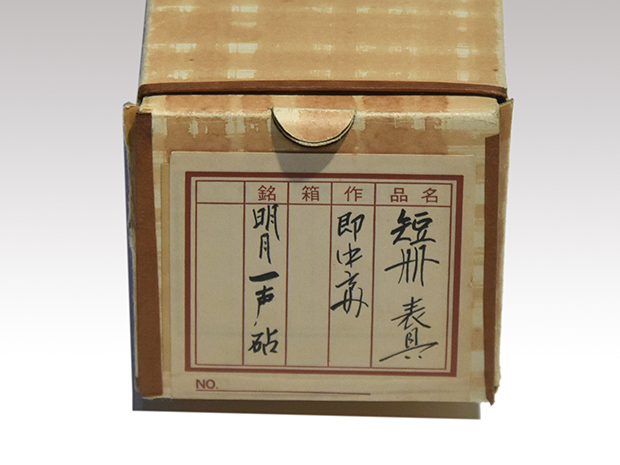 品名
短冊 表具
作
即中斎
箱
銘
明月一声砧
NO.